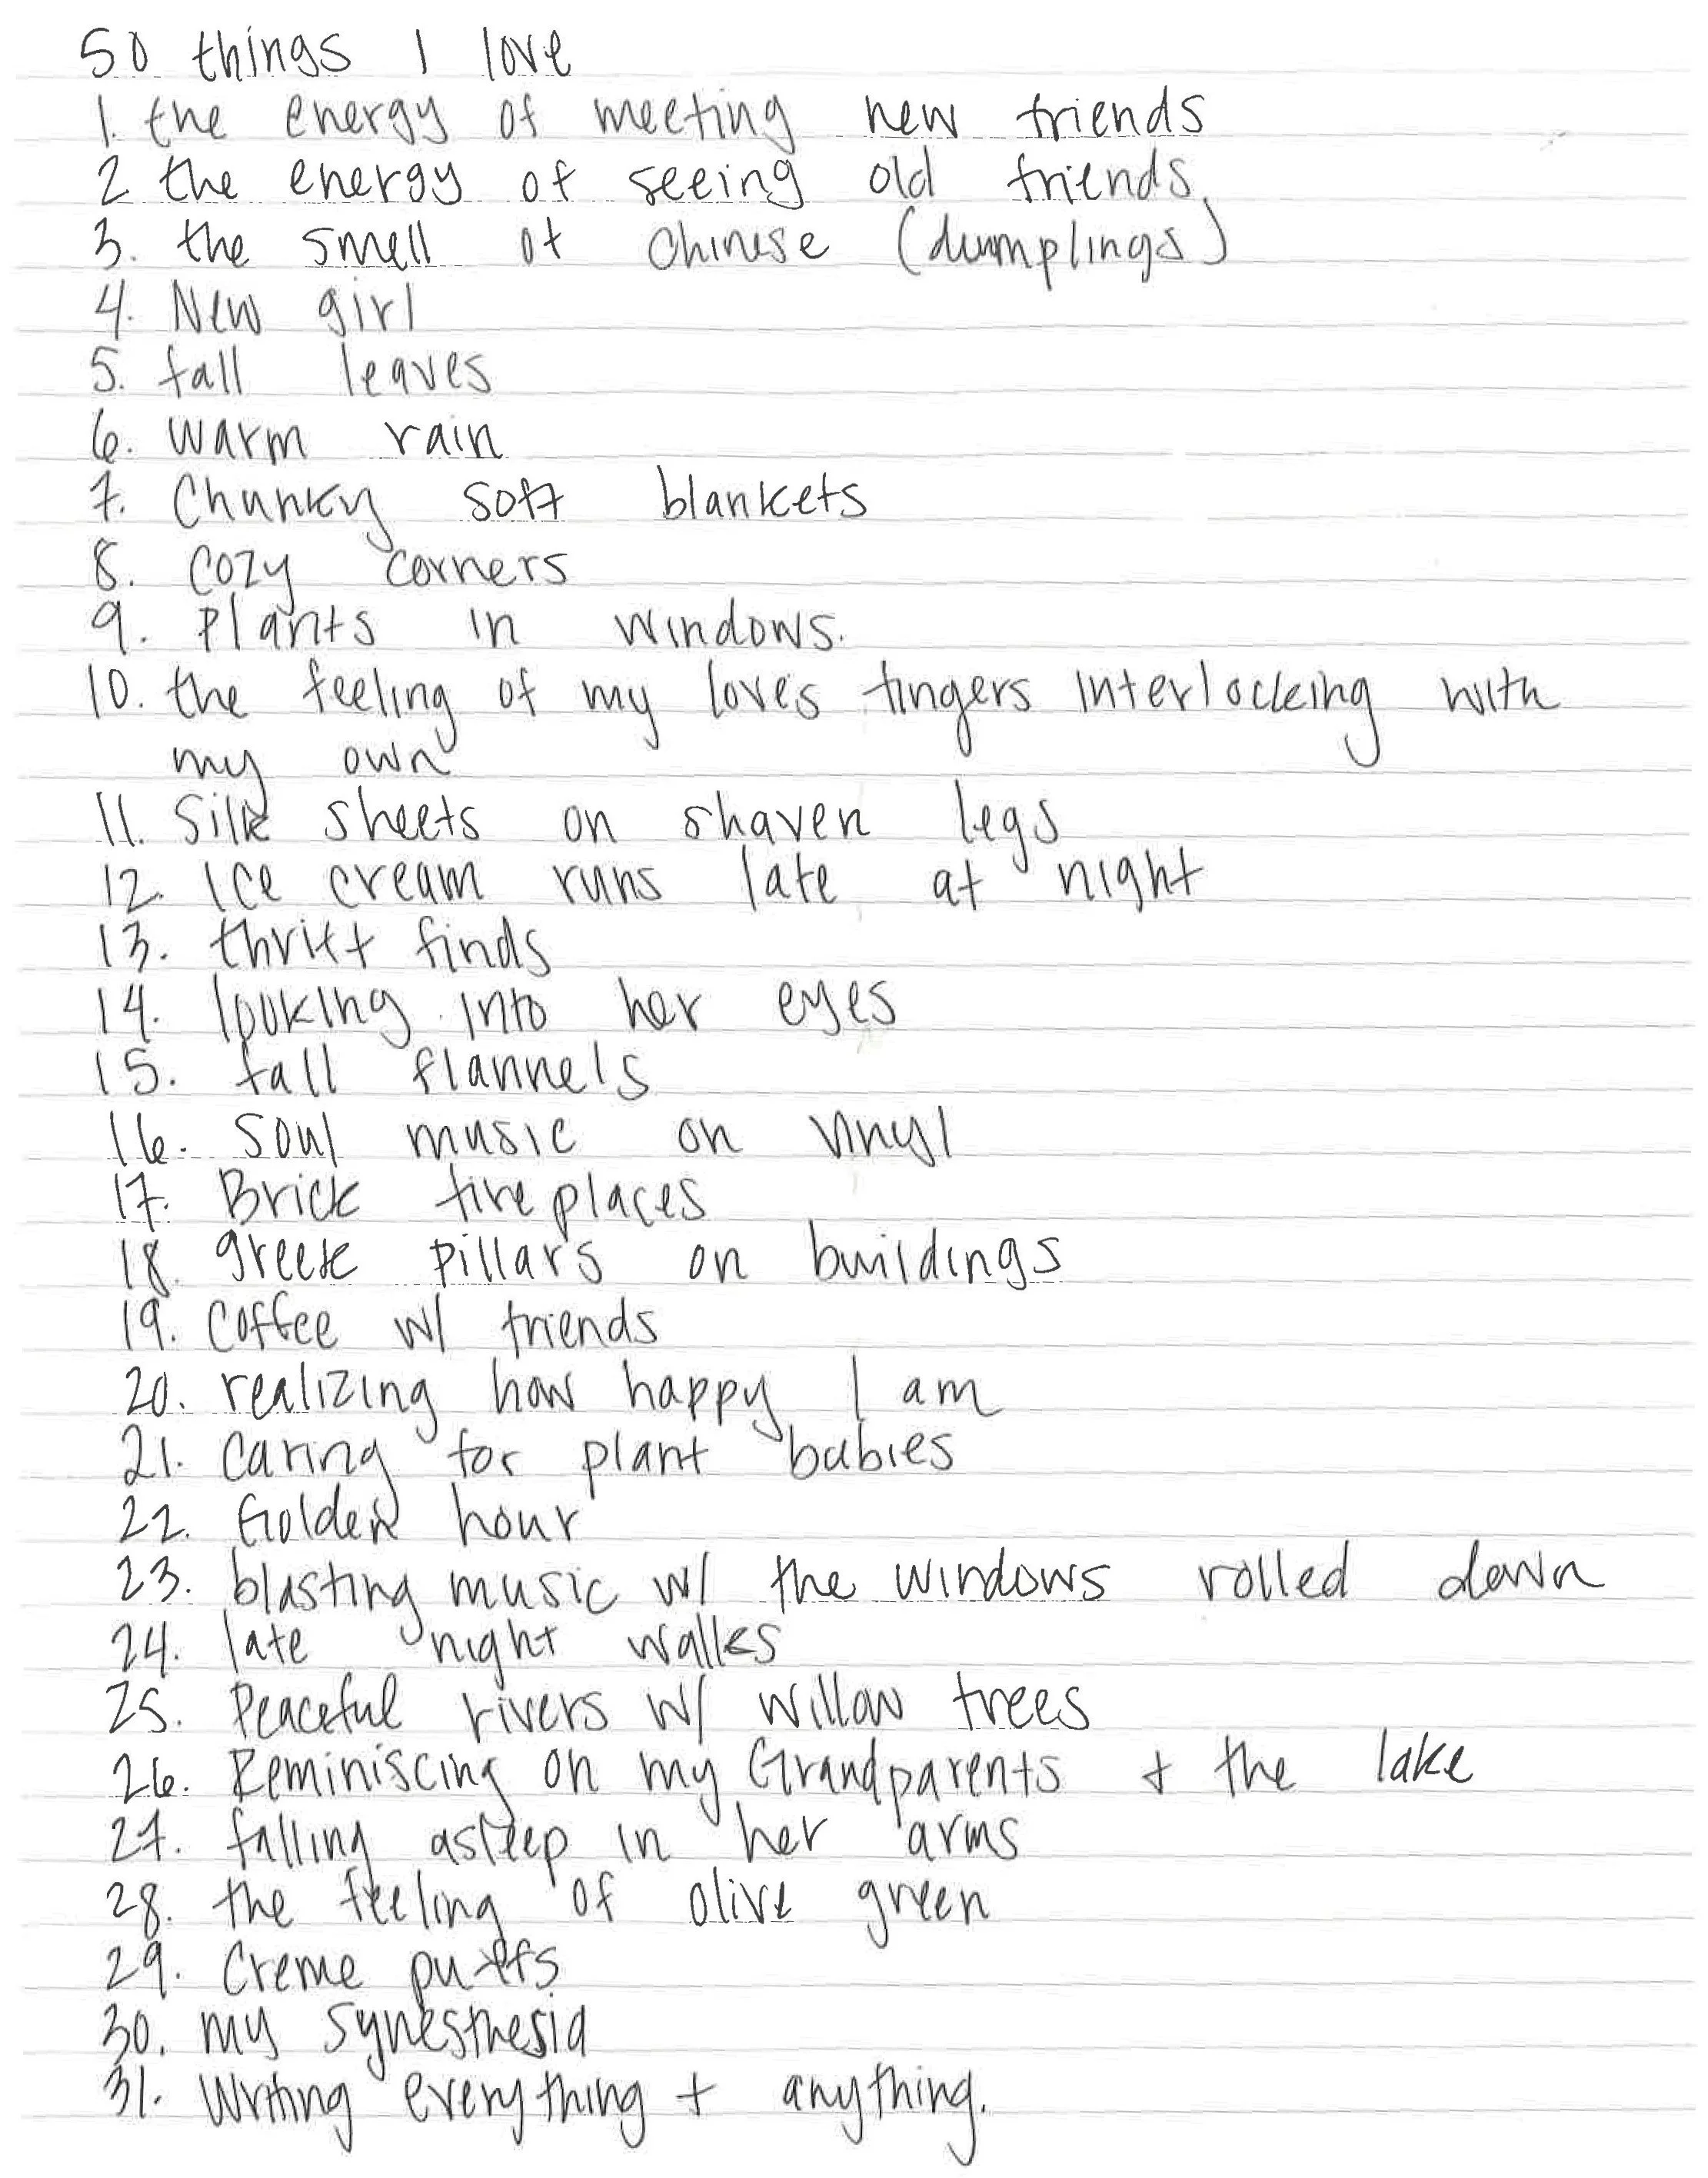 50 things I love
1. the energy of meeting new friends
2 the energy of seeing old friends
3. the smell of Chinese (dumplings)
4. New girl
5. fall leaves
6. warm rain
7. Chunky soft blankets
8. cozy corners
9. Plants in windows.
10. the feeling of my love's fingers interlocking with
my own
11. Silk sheets on shaven legs
12. Ice cream runs late at night
13. thrift finds
14. looking into her eyes
15. fall flannels
16. soul music on vinyl
17. Brick fireplaces
18. greek pillars on buildings
19. Coffee w/ friends
20. realizing how happy I am
21. caring for plant babies
22. Golden hour
23. blasting music w/ the windows rolled down
24. late night walks
25. Peaceful rivers w/ willow trees
26. Reminiscing on my Grandparents + the lake
27. falling asleep in her arms
28. the feeling of olive green
29. Creme puffs
30. my synesthesia
31. Writing everything + anything.